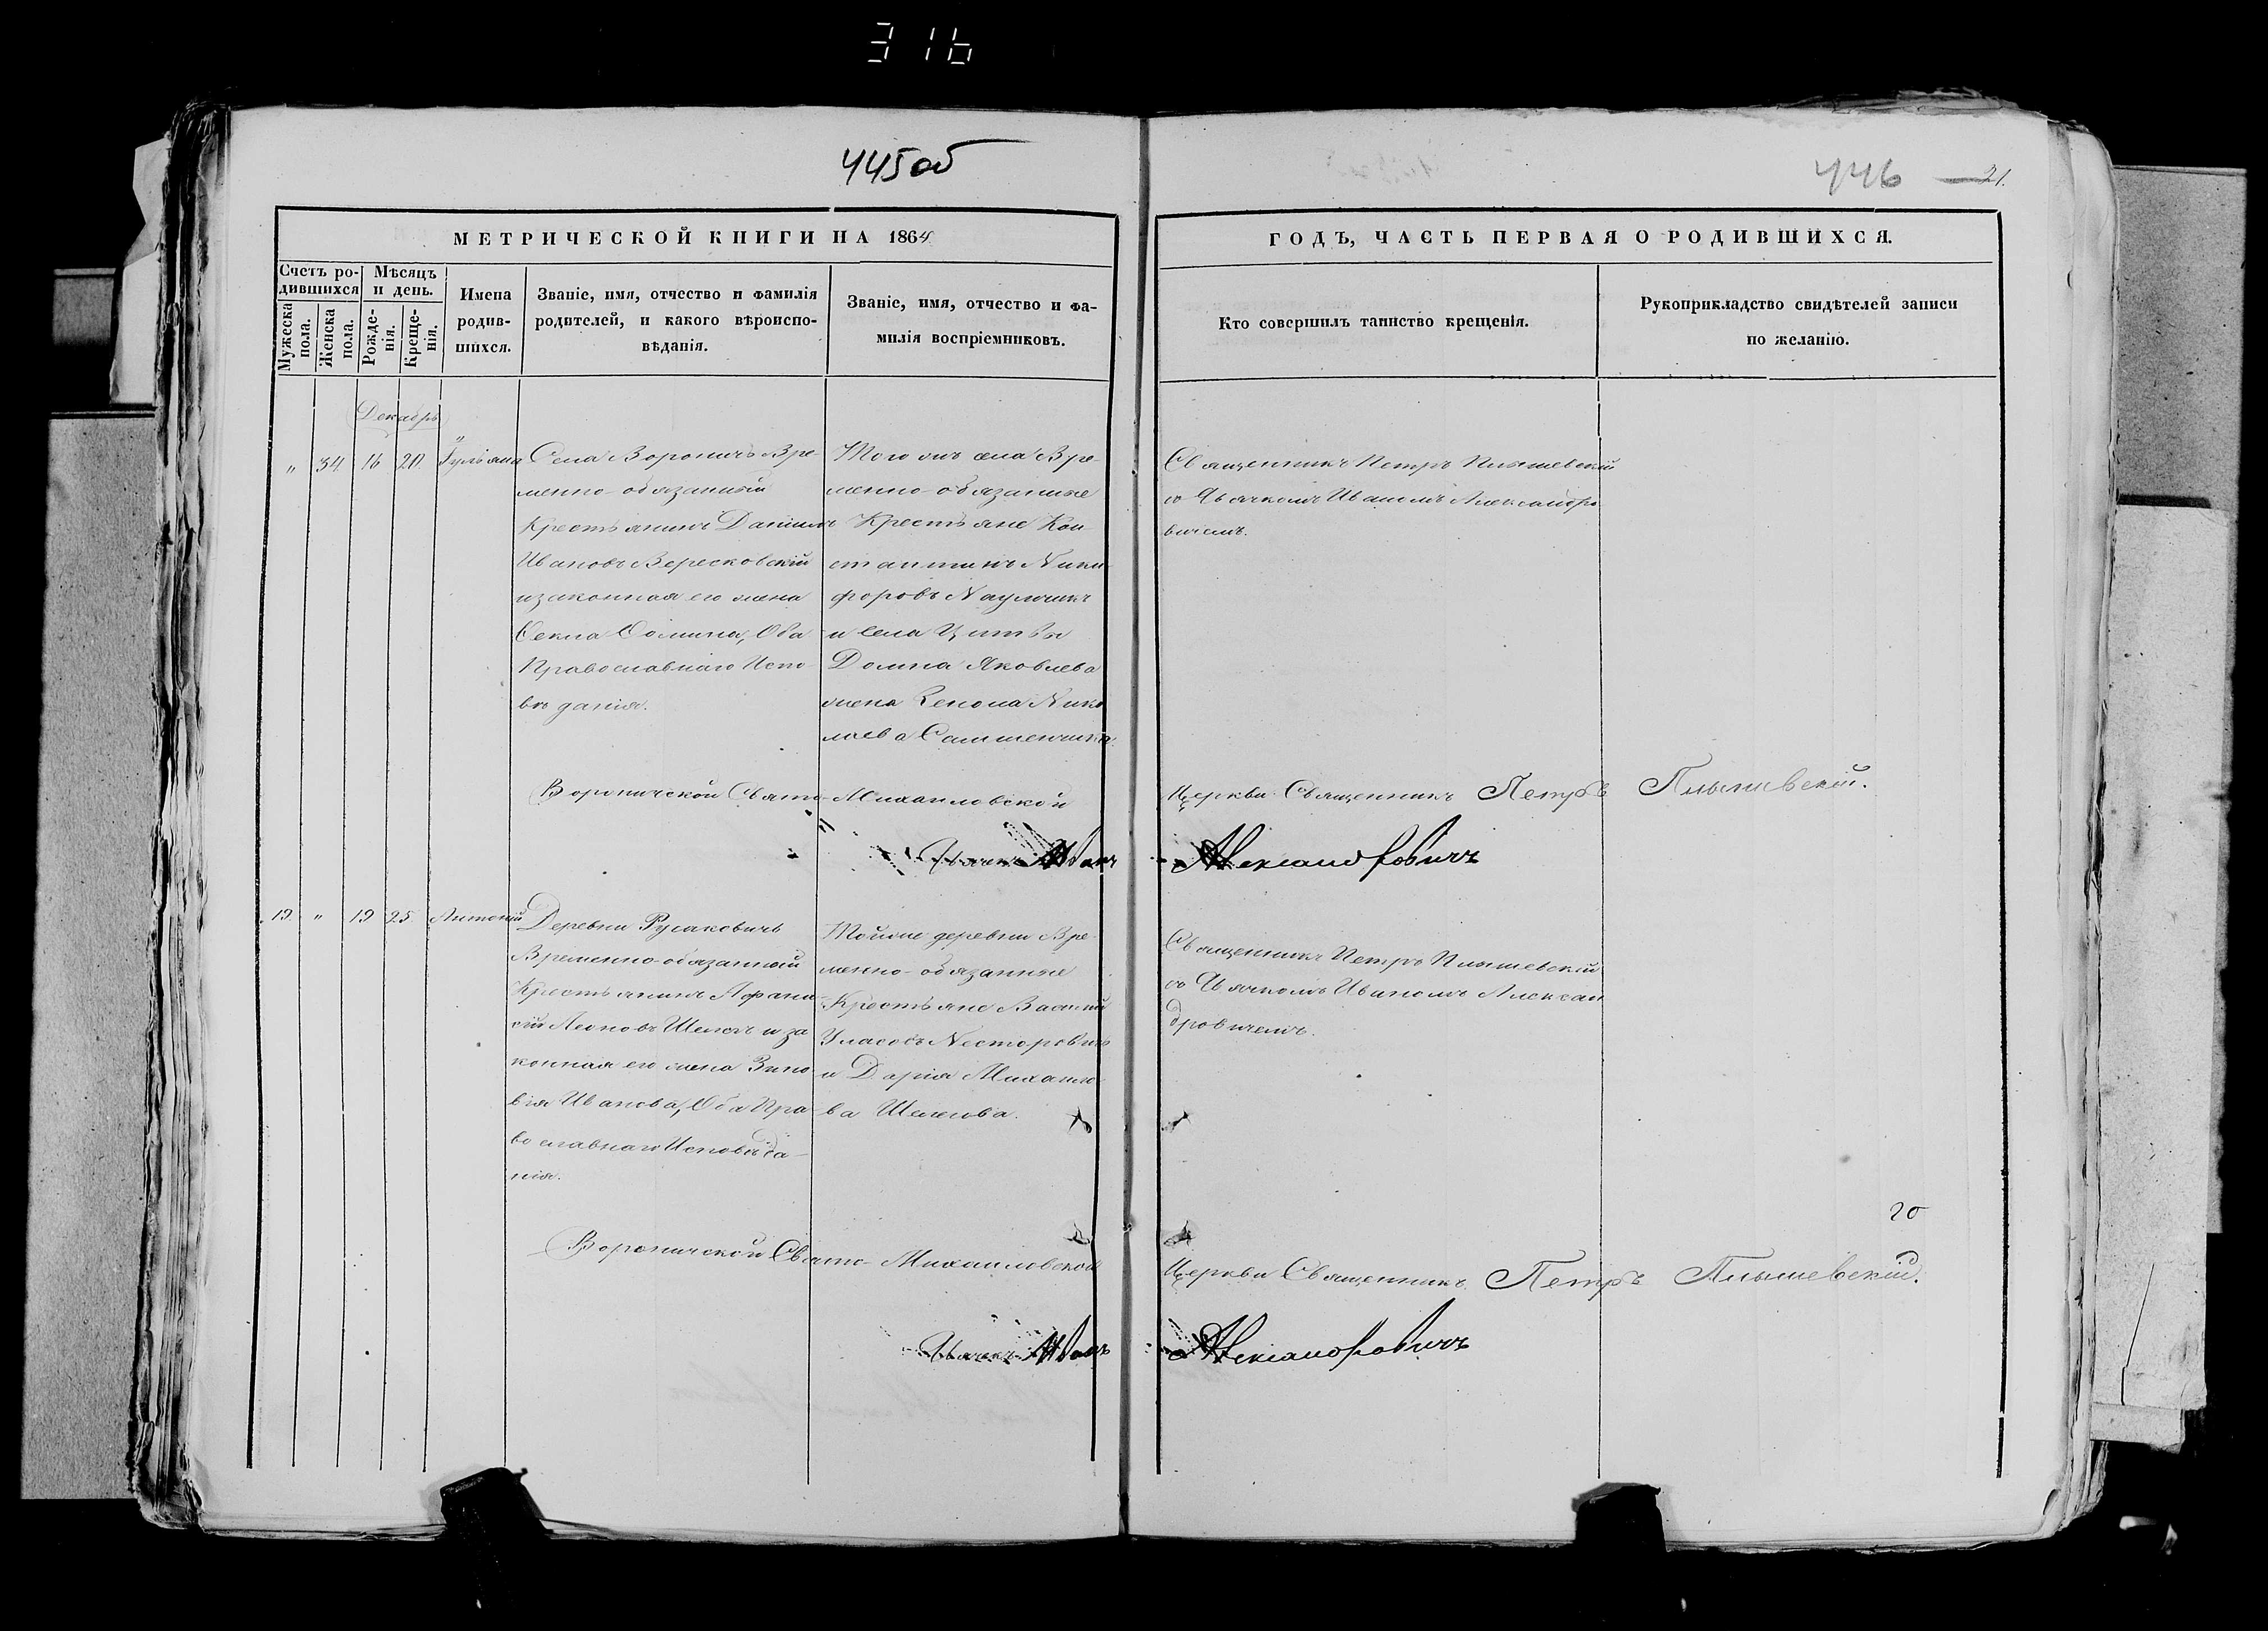 316
445об
446 21.
МЕТРИЧЕСКОЙ КНИГИ НА 1864
ГОДЪ, ЧАСТЬ ПЕРВАЯ О РОДИВШИХСЯ.
Счетъ ро-
дившихся
Мужеска
пола.
Женска
пола.
Мѣсяцъ
и день.
Рожде-
нія.
Креще-
нія.
Имена
родив-
шихся.
Званіе, имя, отчество и фамилія
родителей, и какого вѣроиспо-
вѣданія.
Званіе, имя, отчество и фа-
милія воспріемниковъ.
Кто совершилъ таинство крещенія.
Рукоприкладство свидѣтелей записи
по желанію.
Декабрь
" 34 16 20 Іуліана
Села Вороничъ Вре-
менно-обязанный
Крестьянинъ Даніилъ
Ивановъ Вересковскій
и законная его жена
Ѳекла Ѳомина, Оба
Православнаго Испо-
вѣданія.
Того жъ села Вре-
менно-обязанные
Крестьяне Кон-
стантинъ Ники-
форовъ
и села
Домна Яковлева
жена Нико
лаева
Священникъ Петръ Плышевскій
съ Дьячкомъ Иваномъ Александро
вичемъ.
Вороничской Свято-Михайловской Церкви Священникъ Петръ Плышевскій.
Дьячекъ Иванъ Александровичъ
19. " 19 25 Антоній
Деревни Русаковичъ
Временно-обязанный
Крестьянинъ Афана-
сій Леоновъ Шелегъ и за
конная его жена Зино
вія Иванова, Оба Пра-
вославнаго Исповѣда-
нія.
Тойже деревни Вре-
менно-обязанные
Крестьяне Василій
Уласовъ Несторовичъ
и Дарія Михайло-
ва Шелегова.
Священникъ Петръ Плышевскій
съ Дьячкомъ Иваномъ Алексан
дровичемъ.
20
Вороничской Свято-Михайловской Церкви Священникъ Петръ Плышевскій.
Дьячекъ Иванъ Александровичъ